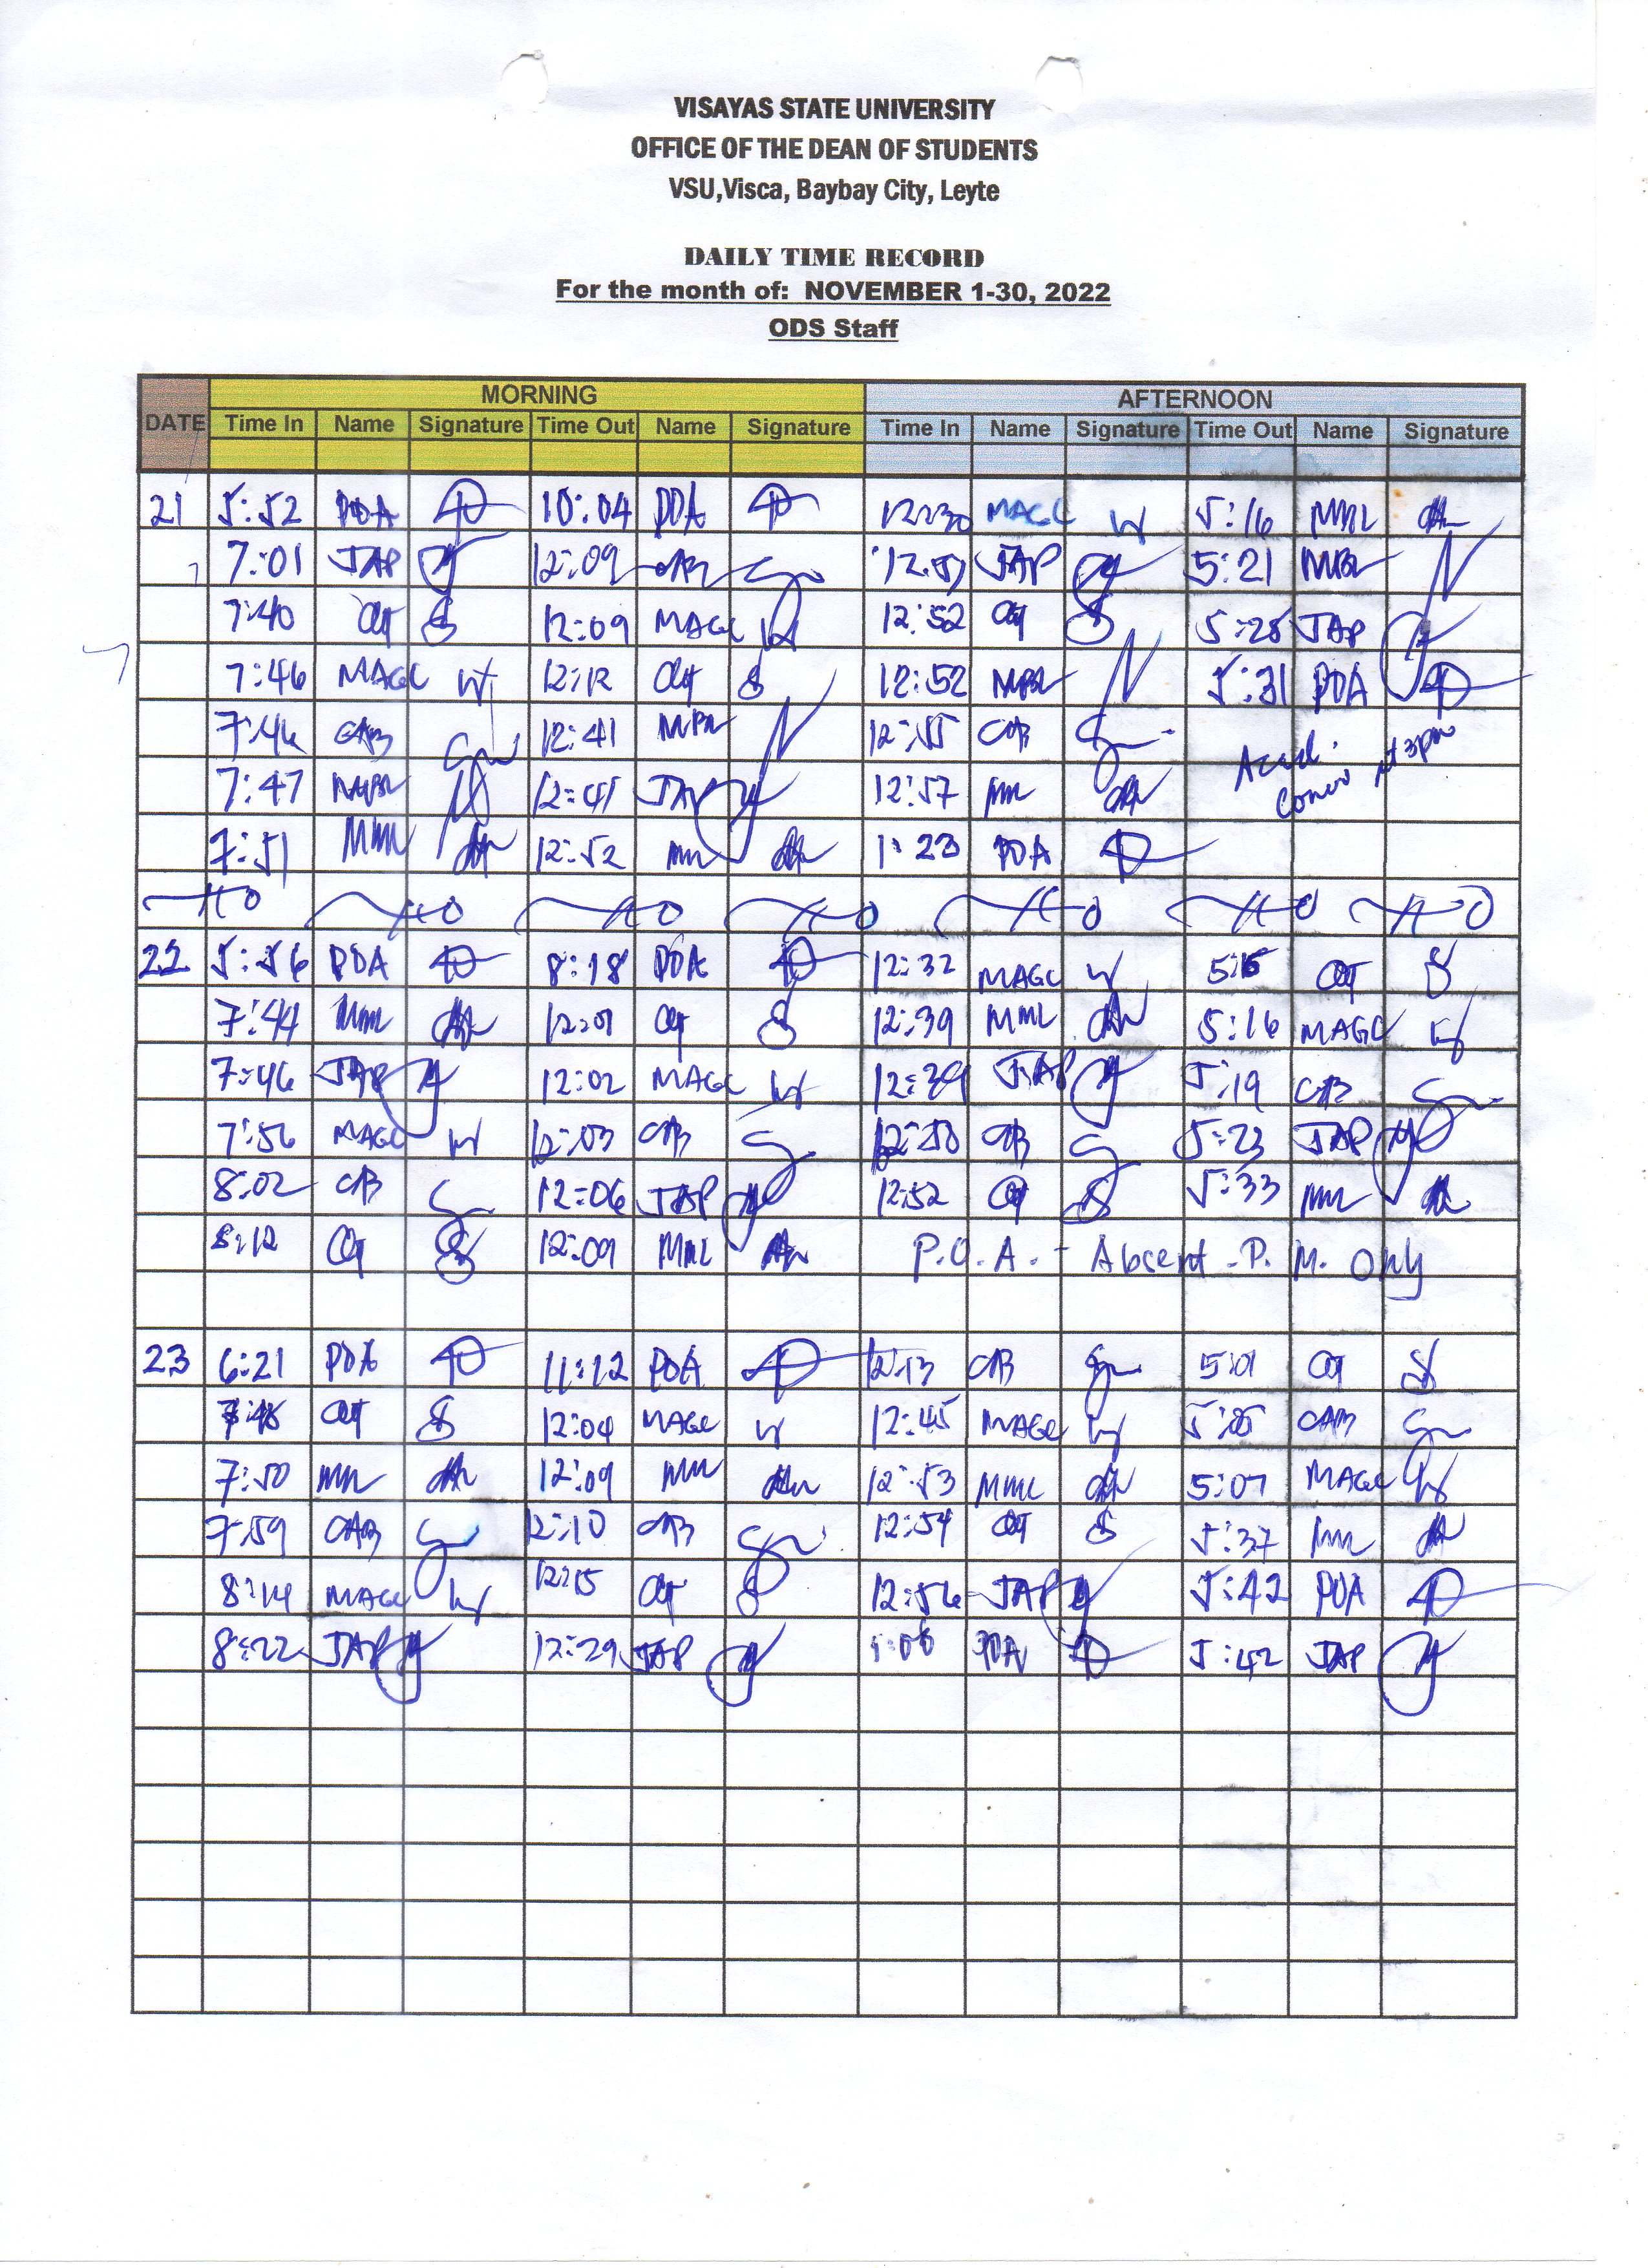 VISAYAS STATE UNIVERSITY
OFFICE OF THE DEAN OF STUDENTS
VSU,Visca, Baybay City, Leyte
DAILY TIME RECORD
For the month of: NOVEMBER 1-30, 2022
ODS Staff
DATE MORNING AFTERNOON
Time In Name Signature Time Out Name Signature Time In Name Signature Time Out Name Signature
21 5:52 PDA 10:04 PDA 12:30 MAGC 5:16 MML
7:01 JAP 12:09 CAB 12:51 JAP 5:21 MBR
7:40 12:09 MAGC 12:52 5:28 JAP
7:46 MAGC 12:12 12:52 MBR 5:31 PDA
7:46 CAB 12:41 MBR 12:55 CAB Acad. Conv at 3pm
7:47 MBR 12:41 JAP 12:57 MML
7:51 MML 12:52 MML 1:23 PDA
22 5:56 PDA 8:18 PDA 12:32 MAGC 5:15
7:44 MML 12:01 12:39 MML 5:16 MAGC
7:46 JAP 12:02 MAGC 12:39 JAP 5:19 CAB
7:56 MAGC 12:03 CAB 12:50 CAB 5:23 JAP
8:02 CAB 12:06 JAP 12:52 5:33 MML
8:12 12:09 MML P.O.A. - Absent - P.M. Only
23 6:21 PDA 11:12 PDA 12:13 CAB 5:01
7:48 12:04 MAGC 12:45 MAGC 5:05 CAB
7:50 MML 12:09 MML 12:53 MML 5:07 MAGC
7:59 CAB 12:10 CAB 12:54 5:37 MML
8:14 MAGC 12:15 12:56 JAP 5:42 PDA
8:22 JAP 12:29 JAP 1:06 PDA 5:42 JAP